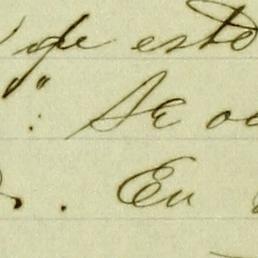 que esto
": Se
. En